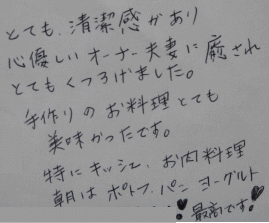 とても、清潔感があり
心優しいオーナー夫妻に癒され
とてもくつろげました。
手作りのお料理とても
美味かったです。
特にキッシュ、お肉料理
朝はポトフ、パン ヨーグルト
最高です!